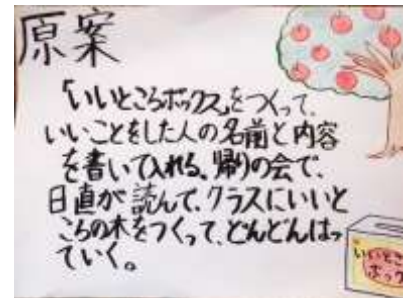 原案
「いいところボックス」をつくって、
いいことをした人の名前と内容
を書いて入れる。帰りの会で、
日直が読んで、クラスにいいと
ころの木をつくって、どんどんはっ
ていく。
いいところ
ボックス